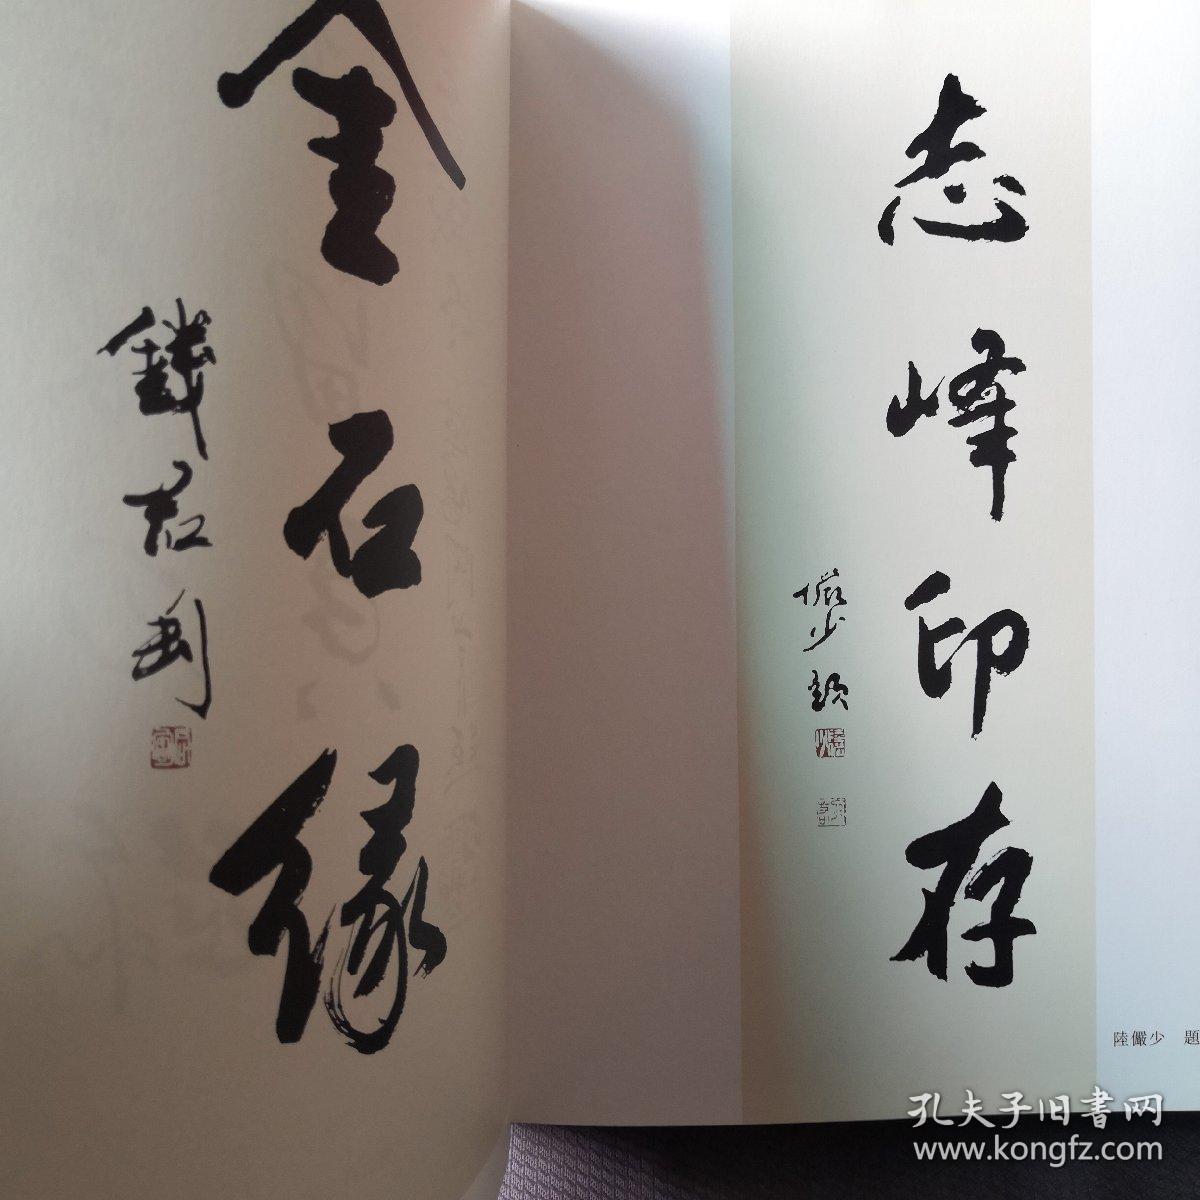 志峰印存
儼少題
陸儼少 題
金石缘
錢君匋
孔夫子旧书网
www.kongfz.com